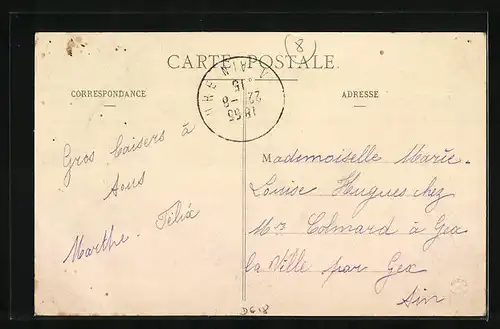 8
CARTE POSTALE.
CORRESPONDANCE
ADRESSE
AIN
15
22 - 8
Gros baisers à
tous
Marthe. Félix
Mademoiselle Marie-
Louise Hugues chez
Mr Colmard à Gex
la Ville par Gex
Ain
D618